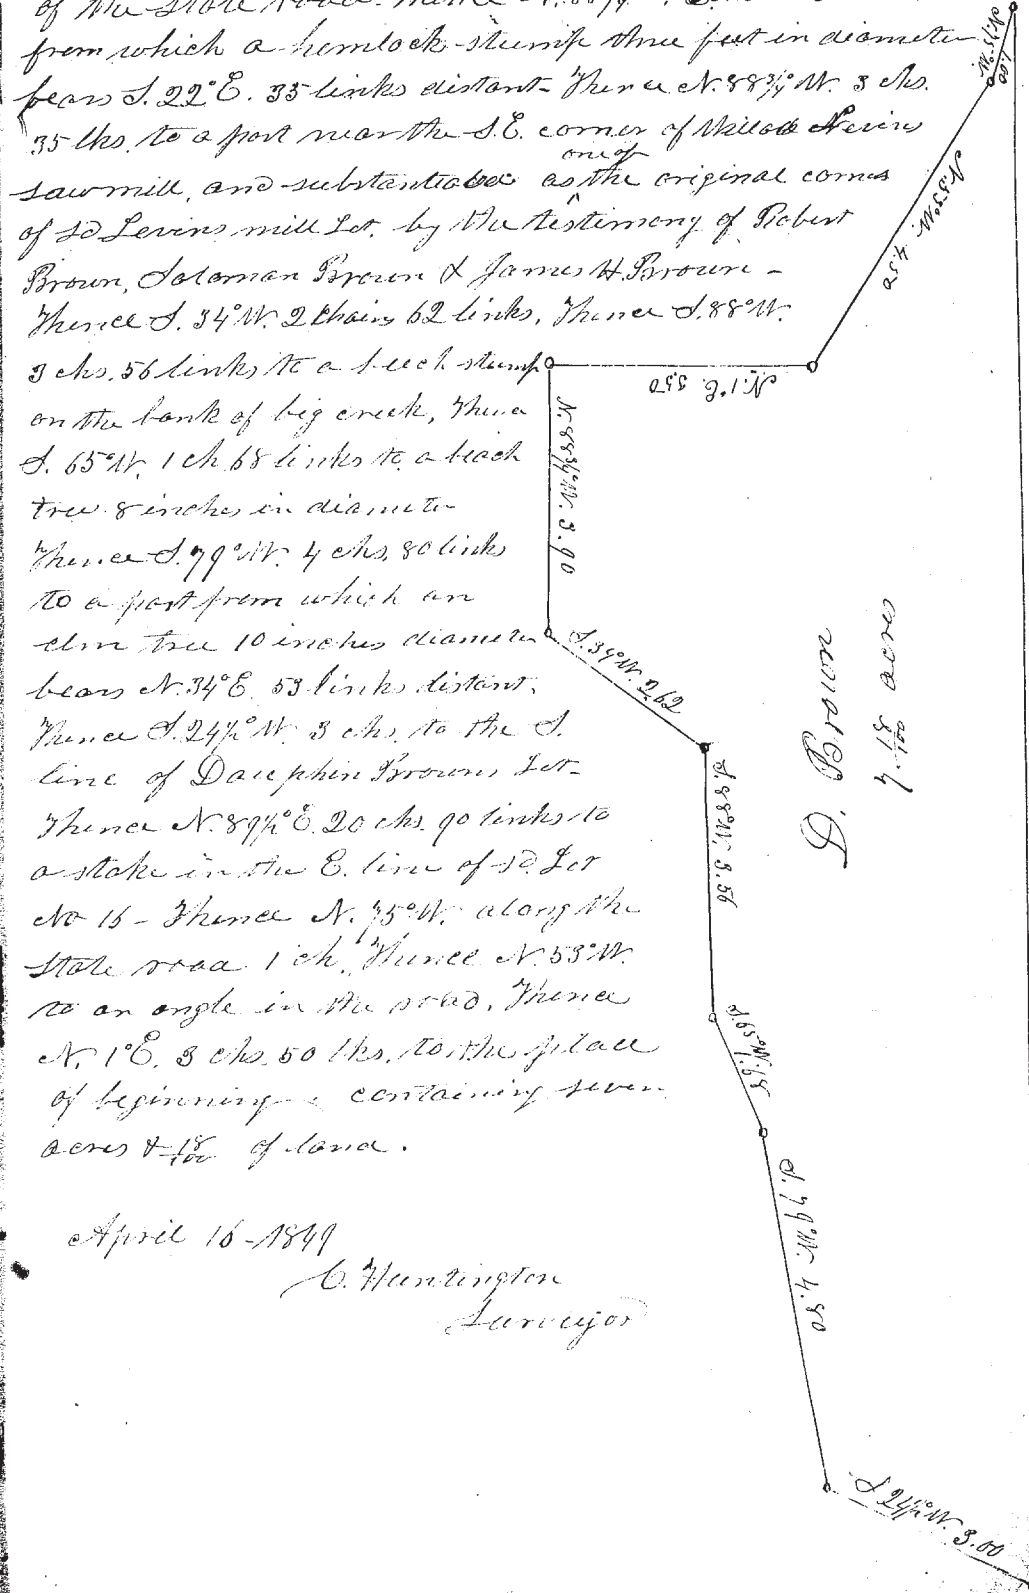 of the State road. Thence N. 88¾
from which a hemlock stump three feet in diameter
bears S. 22° E. 35 links distant - Thence N. 88¾° W. 3 chs.
35 lks. to a post near the S.E. corner of Nevins
sawmill, and substantiated as the original corner
one of
of sd Levins mill Lot. by the testimony of Robert
Brown, Soloman Brown & James H. Brown -
Thence S. 34° W. 2 chains 62 links, Thence S. 88° W.
3 chs. 56 links to a beech stump
on the bank of big creek, Thence
S. 65° W. 1 ch 68 links to a beach
tree 8 inches in diameter
Thence S. 79° W. 4 chs. 80 links
to a post from which an
elm tree 10 inches diameter
bears N. 34° E. 53 links distant.
Thence S. 24½° W. 3 chs. to the S.
line of Dauphin Browns Lot -
Thence N. 89½° E. 20 chs. 90 links to
a stake in the E. line of sd. Lot
No 16 - Thence N. 75° W. along the
State road 1 ch, Thence N. 53° W.
to an angle in the road, Thence
N. 1° E. 3 chs. 50 lks. to the place
of beginning containing seven
acres & 18/100 of land.
April 16 - 1849
C. Huntington
Surveyor
N. 75° W. 1.00
N. 53° W. 4.50
N. 1° E. 3.50
N. 88¾° W. 3.90
S. 34° W. 2.62
S. 88° W. 3.56
S. 65° W. 1.68
S. 79° W. 4.80
S 24½° W. 3.00
D. Brown
7 18/100 acres